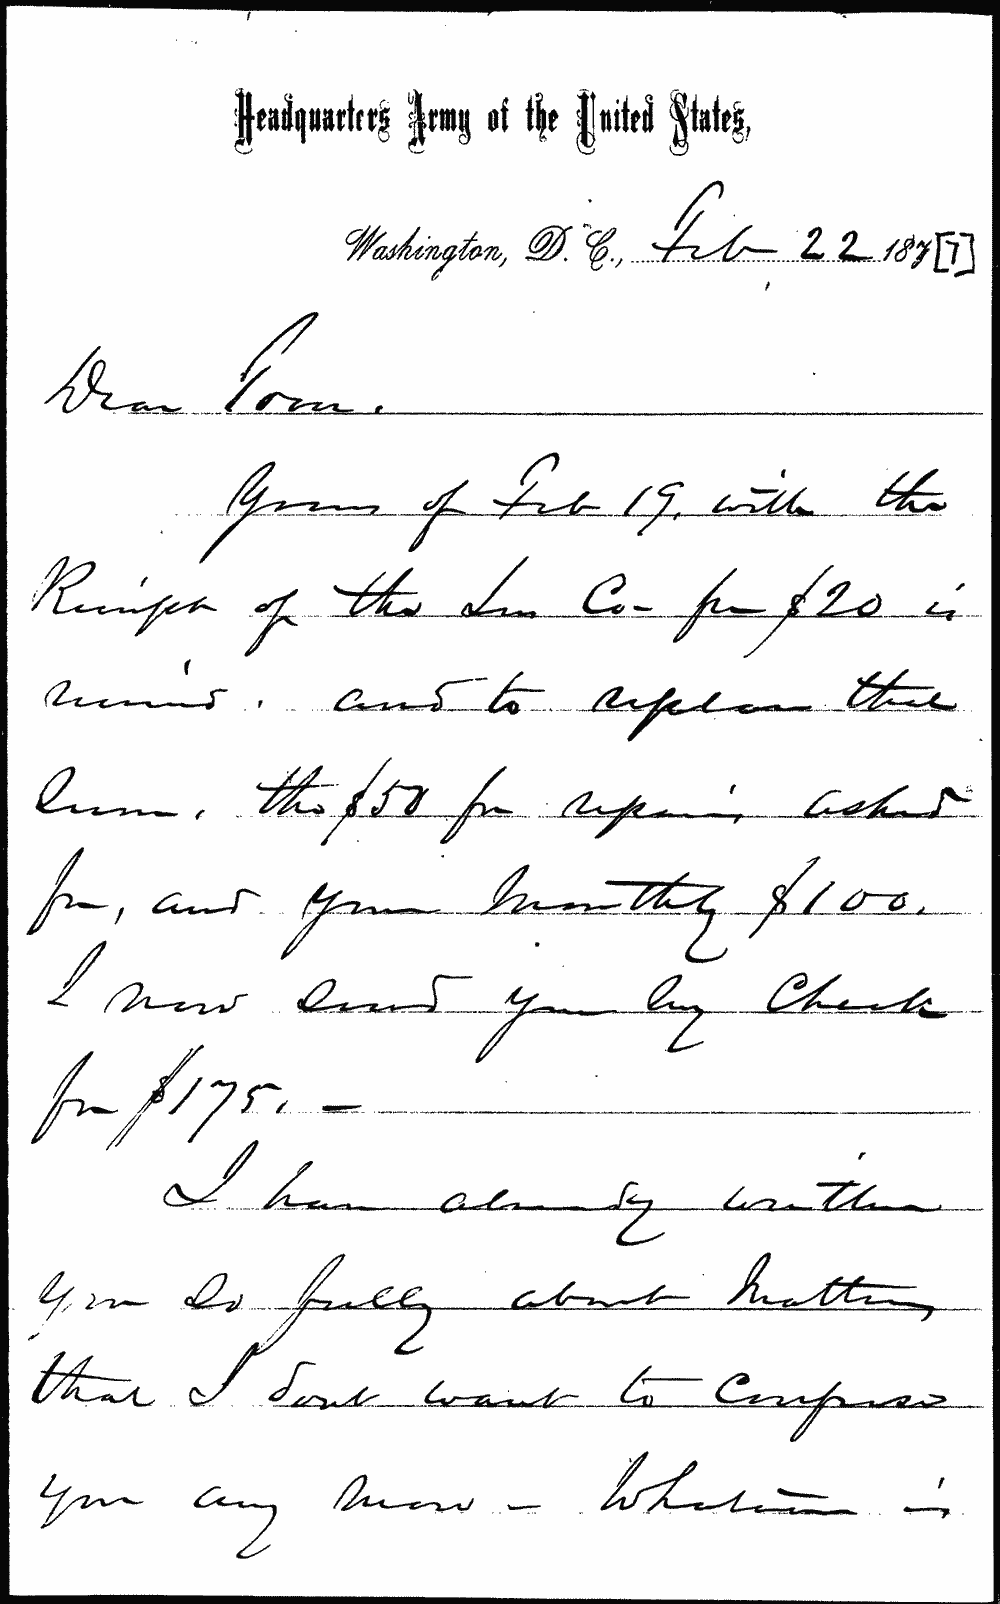 Headquarters Army of the United States,
Washington, D. C., Feb 22 187[7]
Dear Tom.
Yours of Feb 19, with the
Receipt of the Ins Co- for $20 is
received. and to replace that
Sum, the $50 for repairs asked
for, and your Monthly $100.
I now send you my Check
for $175. -
I have already written
you so fully about Matters
that I dont want to Confuse
you any more - Whatever is